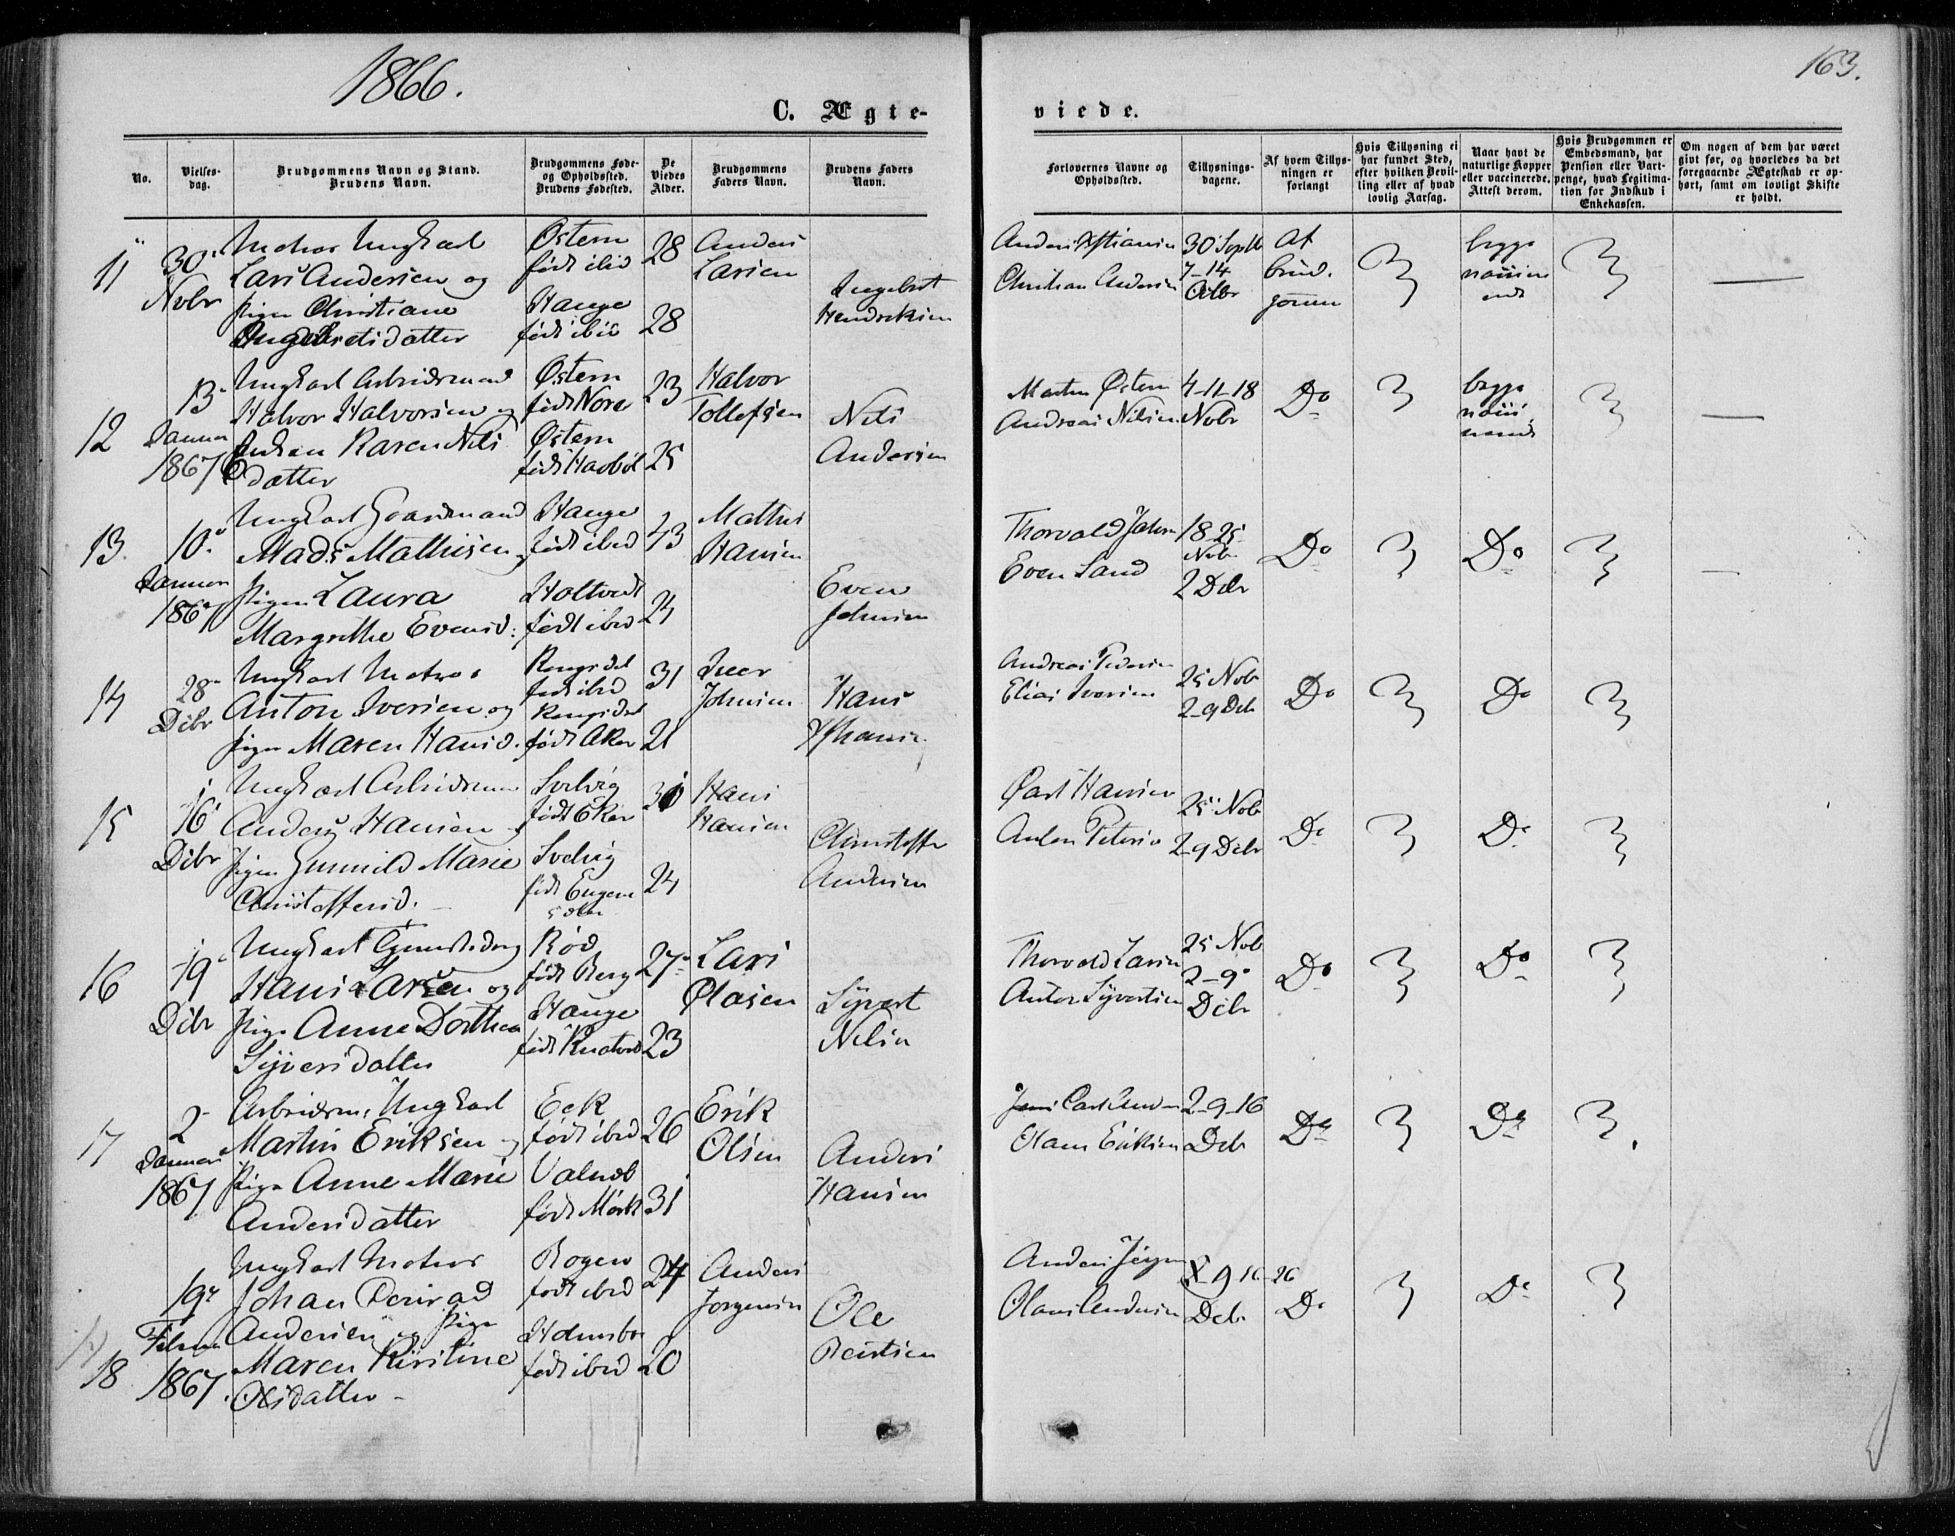 1866.
163.
C. Ægte-
viede.
No.
Vielses-
dag.
Brudgommens Navn og Stand.
Brudens Navn.
Brudgommens Føde-
og Opholdssted.
Brudens Fødested.
De
Viedes
Alder.
Brudgommens
Faders Navn.
Brudens Faders
Navn.
Forlovernes Navne og
Opholdssted.
Tillysnings-
dagene.
Af hvem Tillys-
ningen er
forlangt
Hvis Tillysning ei
har fundet Sted,
efter hvilken Bevil-
ling eller af hvad
lovlig Aarsag.
Naar havt de
naturlige Kopper
eller vaccinerede.
Attest derom.
Hvis Brudgommen er
Embedsmand, har
Pension eller Vart-
penge, hvad Legitima-
tion for Indskud i
Enkekassen.
Om nogen af dem har været
givt før, og hvorledes da det
foregaaende Ægteskab er op-
hørt, samt om lovligt Skifte
er holdt.
11
30
Nobr
Matros Ungkarl
Lars Andersen og
Pigen Christiane
Ingebretsdatter
Østern
født ibid
Hauge
født ibid
28
28
Anders
Larsen
Ingebret
Hendriksen
Christian Andersen
30 Septb
7-14
Octbr
Af
brud.
gommen
begge
12
13
Januar
1867
Ungkarl Arbeidsmand
Halvor Halvorsen og
Karen Nils
datter
Østern
født Nore
Østern
23
25
Halvor
Tollefsen
Nils
Andersen
Morten Østern
Andreas Nilsen
4-11-18
Nobr
Do
begge
13.
10
Januar
1867
Ungkarl Gaardmand
Mads Mathisen
Pigen Laura
Margrethe Evensd.
Hauge
født ibid
Holtvedt
født ibid
43
24
Mathis
Hansen
Even
Johnsen
Thorvald
Even Sand
18-25
Nobr
2 Dcbr
Do
Do
14
28
Dcbr
Ungkarl Matros
Anton Iversen og
Pigen Maren Hansd.
født ibid
født Aker
31
21
Iver
Johnsen
Hans
Andreas Pedersen
Elias Iversen
25 Nob
2-9 Dcb
Do
Do
15
16
Dcbr
Ungkarl Arbeidsm
Anders Hansen
Pigen Gunnild Marie
Christoffersd.
Svelvig
født Eker
Svelvig
født Eugene
24
Hans
Hansen
Christoffer
Andersen
Carl Hansen
Anton Peters
25 Nob
2-9 Dcbr
Do
Do
16
19
Dcbr
Ungkarl
Hans Larsen og
Pige Anne Dorthea
Syversdatter
Rød
født Berg
Hauge
27
23
Lars
Olasen
Syvert
Nilsen
Thorvald Larsen
Anton Syvertsen
25 Nob
2-9
Dcbr
Do
Do
17
2
Januar
1867
Arbeidsm. Ungkarl
Martin Eriksen
Pige Anne Marie
Andersdatter
Eek
født ibid
født Mørk
26
31
Erik
Olsen
Anders
Hansen
Olaus Eriksen
2-9-16
Dcb
Do
Do
18
19
1867.
Ungkarl Matros
Johan Conrad
Andersen og Pige
Maren Kirstine
Olsdatter
Bogen
født ibid
Holmsbo
født ibid
24
20
Anders
Jorgensen
Ole
Berntsen
Anders Jørgen
Olaus Andersen
9 16
Dcb
Do
Do